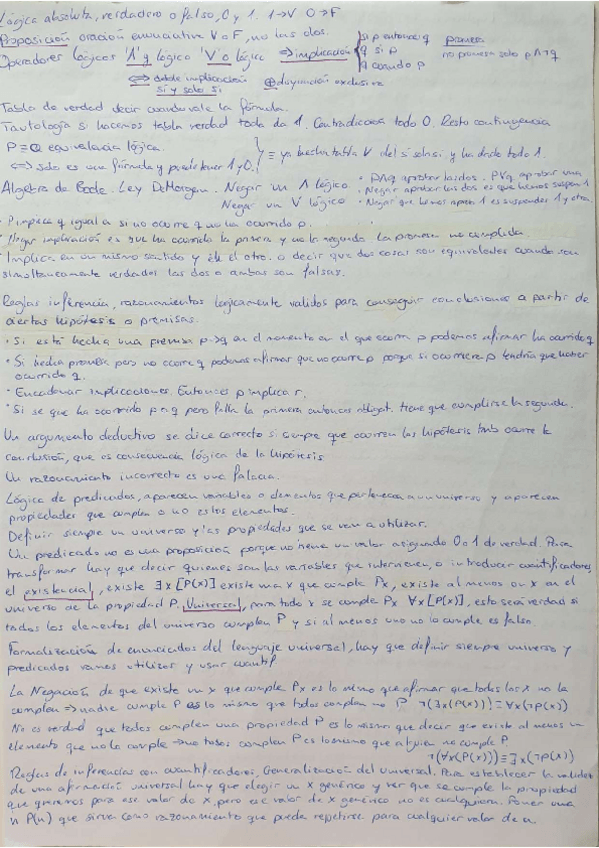 Lógica absoluta, verdadero o falso, 0 y 1. 1→V 0→F
Proposición oración enunciativa V o F, no las dos.
Operadores lógicos 'Λ' y lógico 'V' o lógico ⟹ implicación
si p entonces q
q si p
q cuando p
promesa
no promesa solo p Λ ¬q
⟺ doble implicación
si y solo si
⊕ disyunción exclusiva
Tabla de verdad decir cuando vale la fórmula.
Tautología si hacemos tabla verdad toda da 1. Contradicción todo 0. Resto contingencia
P ≡ Q equivalencia lógica.
⟺ solo es una fórmula y puede tener 1 y 0.
≡ ya hecha tabla V del si solo si y ha dado todo 1.
Algebra de Boole. Ley DeMorgan. Negar un Λ lógico
Negar un V lógico
· PΛq aprobar las dos. PVq aprobar una
· Negar aprobar las dos es que hemos suspen 1
· Negar que hemos aprob 1 es suspender 1 y otra.
· P implica q igual a si no ocurre q no ha ocurrido p.
· Negar implicación es que ha ocurrido la primera y no la segunda. La promesa no cumplida.
· Implica en un mismo sentido y en el otro. o decir que dos cosas son equivalentes cuando son
simultaneamente verdades las dos o ambas son falsas.
Reglas inferencia, razonamientos logicamente validos para conseguir conclusiones a partir de
ciertas hipótesis o premisas.
· Si está hecha una premisa p→q en el momento en el que ocurra p podemos afirmar ha ocurrido q
· Si hecha promesa pero no ocurre q podemos afirmar que no ocurre p porque si ocurriera p tendría que haber
ocurrido q.
· Encadenar implicaciones. Entonces p implica r.
· Si se que ha ocurrido p o q pero falla la primera entonces obligat. tiene que cumplirse la segunda.
Un argumento deductivo se dice correcto si siempre que ocurren las hipótesis tmb ocurre la
conclusión, que es consecuencia lógica de la hipótesis
Un razonamiento incorrecto es una falacia.
Lógica de predicados, aparecen variables o elementos que pertenecen a un universo y aparecen
propiedades que cumplen o no estos elementos.
Definir siempre un universo y las propiedades que se van a utilizar.
Un predicado no es una proposición porque no tiene un valor asignado 0 o 1 de verdad. Para
transformar hay que decir quienes son las variables que intervienen, o introducir cuantificadores,
el existencial, existe ∃x[P(x)] existe una x que cumple Px, existe al menos un x en el
universo de la propiedad P. Universal, para todo x se cumple Px ∀x[P(x)], esto será verdad si
todos los elementos del universo cumplen P y si al menos uno no lo cumple es falso.
Formalización de enunciados del lenguaje universal, hay que definir siempre universo y
predicados vamos utilizar y usar cuantif.
La Negación de que existe un x que cumple Px es lo mismo que afirmar que todas las x no la
cumplen ⟹ nadie cumple P es lo mismo que todos cumplen no P ¬(∃x(P(x))) ≡ ∀x(¬P(x))
No es verdad que todos cumplen una propiedad P es lo mismo que decir que existe al menos un
elemento que no la cumple → no todos cumplen P es lo mismo que alguien no cumple P
¬(∀x(P(x))) ≡ ∃x(¬P(x))
Reglas de inferencias con cuantificadores, Generalización del universal. Para establecer la validez
de una afirmación universal hay que elegir un x genérico y ver que se cumple la propiedad
que queremos para ese valor de x, pero ese valor de x genérico no es cualquiera. Poner una
n P(n) que sirva como razonamiento que pueda repetirse para cualquier valor de n.